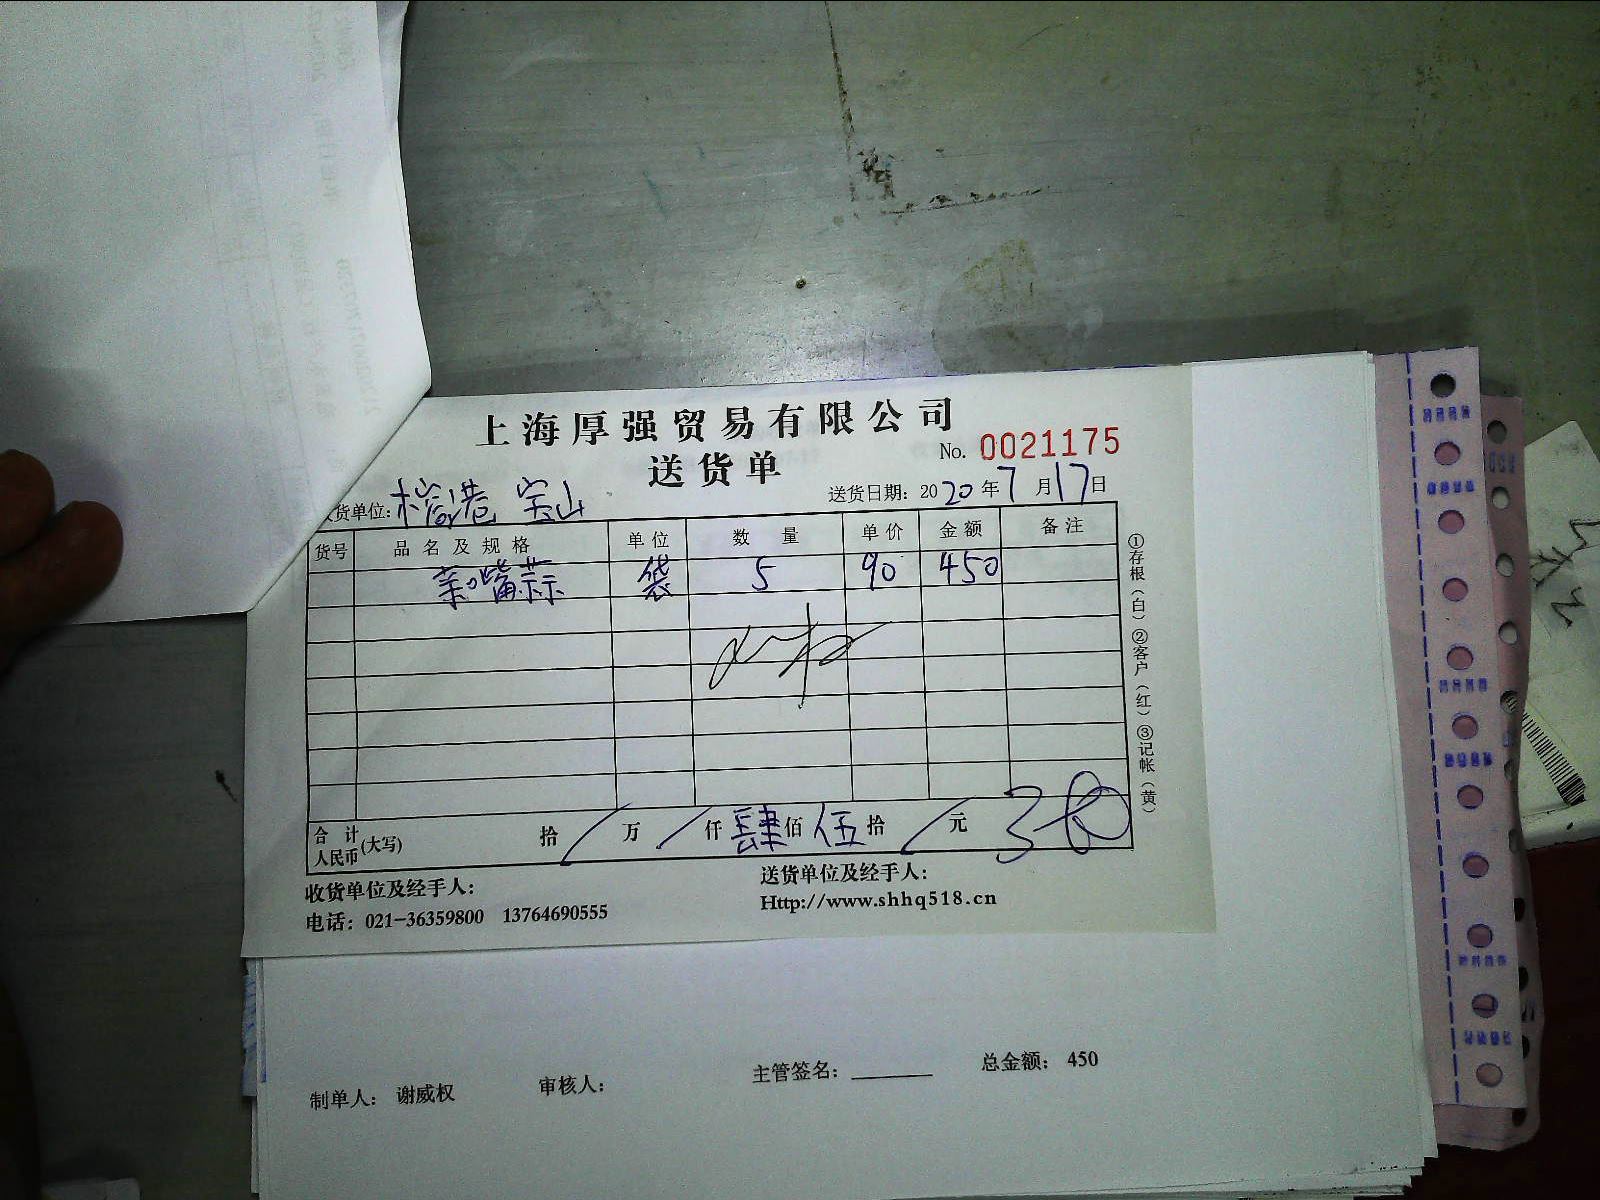 上海厚强贸易有限公司
送货单
No. 0021175
货单位: 宝山
送货日期: 2020年7月17日
货号 品名及规格 单位 数量 单价 金额 备注
亲嘴蒜 袋 5 90 450
①存根(白)②客户(红)③记帐(黄)
合计人民币(大写) 拾 / 万 / 仟 肆 佰 伍 拾 / 元
收货单位及经手人:
送货单位及经手人:
电话: 021-36359800 13764690555
Http://www.shhq518.cn
制单人: 谢威权 审核人: 主管签名: 总金额: 450